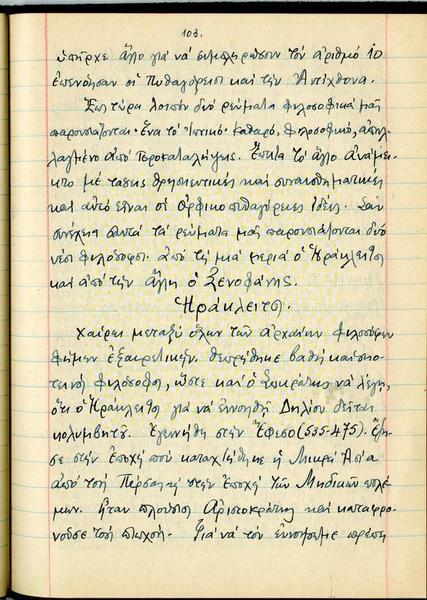 103.
ὑπῆρχε ἄλλο γιά νά συμπληρώσουν τόν ἀριθμό 10
ἐπενόησαν οἱ Πυθαγόρειοι καί τήν Ἀντίχθονα.
Ἕως τώρα λοιπόν δύο ρεύματα φιλοσοφικά μᾶς
παρουσιάζονται· Ἕνα τό Ἰωνικό· καθαρό, φιλοσοφικό, ἀπαλ-
λαγμένο ἀπό προκαταλήψεις. Ἔπειτα τό ἄλλο ἀνάμει-
κτο μέ τάσεις θρησκευτικές καί συναισθηματικές
καί αὐτό εἶναι οἱ Ὀρφικοπυθαγόρειες ἰδέες. Σάν
συνέχεια σ' αὐτά τά ρεύματα μᾶς παρουσιάζονται δυό
νέοι φιλόσοφοι. ἀπό τή μιά μεριά ὁ Ἡράκλειτος
καί ἀπό τήν ἄλλη ὁ Ξενοφάνης.
Ἡράκλειτος.
Χαίρει μεταξύ ὅλων τῶν ἀρχαίων φιλοσόφων
φήμην ἐξαιρετικήν. θεωρήθηκε βαθύς καί σκο-
τεινός φιλόσοφος, ὥστε καί ὁ Σωκράτης νά λέγη,
ὅτι ὁ Ἡράκλειτος γιά νά ἐννοηθῆ Δηλίου δεῖται
κολυμβητοῦ. Ἐγεννήθη στήν Ἔφεσο (535-475). Ἔζη-
σε στήν ἐποχή πού κατακτήθηκε ἡ Μικρά Ἀσία
ἀπό τούς Πέρσας, στήν ἐποχή τῶν Μηδικῶν πολέ-
μων. ἦταν πλούσιος Ἀριστοκράτης καί καταφρο-
νοῦσε τούς πτωχούς. Γιά νά τόν ἐννοήσωμε πρέπει